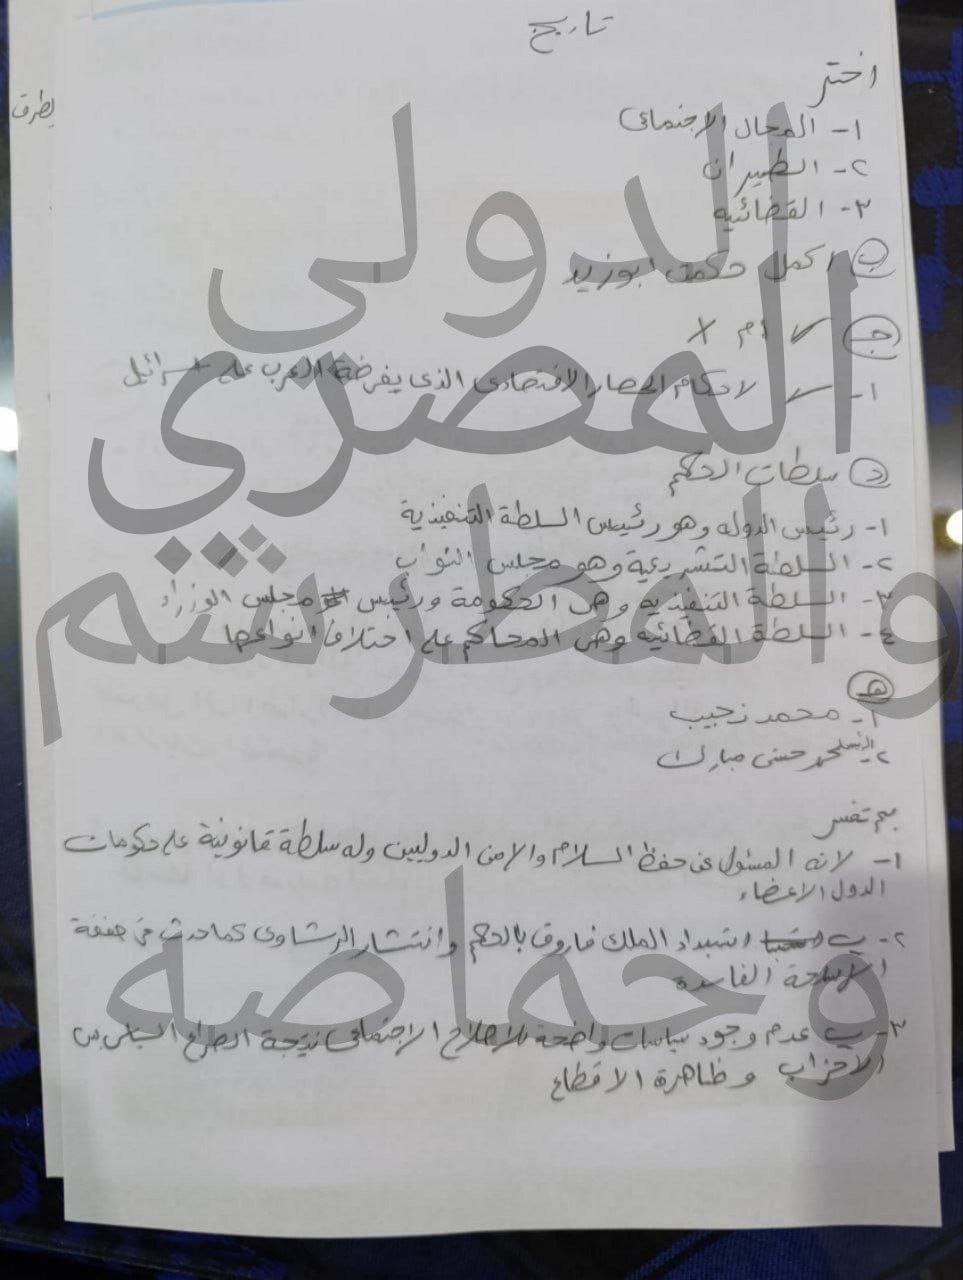 تاريخ
اختر
١- المجال الاجتماعى
٢- الطيران
٣- القضائيه
ب اكمل حكمت ابوزيد
جـ ✓ ام X
١- ✓ لاحكام الحصار الاقتصادى الذى يفرضة العرب على اسرائيل
د سلطات الحكم
١- رئيس الدوله وهو رئيس السلطة التنفيذية
٢- السلطة التشريعية وهو مجلس النواب
٣- السلطة التنفيذيه وهى الحكومة ورئيس مجلس الوزراء
٤- السلطة القضائيه وهى المحاكم على اختلاف انواعها
هـ
١- محمد نجيب
٢- محمد حسنى مبارك
بم تفسر
١- لانه المسئول عن حفظ السلام والامن الدوليين وله سلطة قانونية على حكومات
الدول الاعضاء
٢- استبداد الملك فاروق بالحكم وانتشار الرشاوى كما حدث فى صفقة
الاسلحة الفاسدة
٣- عدم وجود سياسات واضحة للاصلاح الاجتماعى نتيجة الصراع السياسى بين
الاحزاب وظاهرة الاقطاع
يطرق
الدولي
المصري
والمطرشم
وحماصه